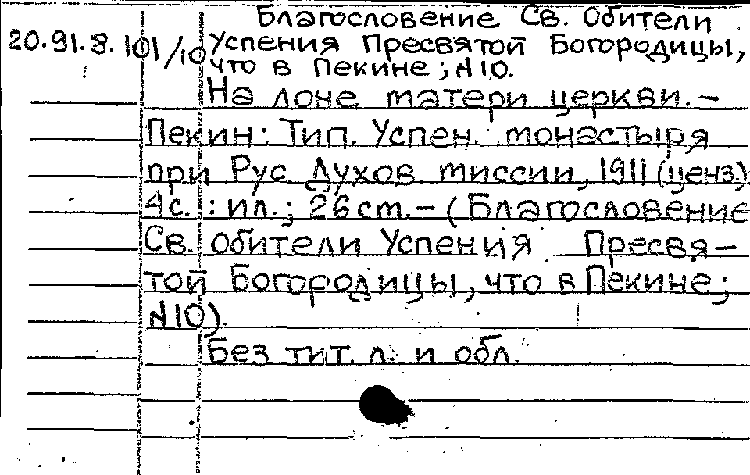 Благословение Св. Обители
20.91.8.101/10 Успения Пресвятой Богородицы,
что в Пекине; N10.
На лоне матери церкви. –
Пекин: Тип. Успен. монастыря
при Рус. Духов. миссии, 1911 (ценз.)
4с.: ил.; 26 ст. – (Благословение
Св. обители Успения Пресвя–
той Богородицы, что в Пекине;
N10).
Без тит. л. и обл.